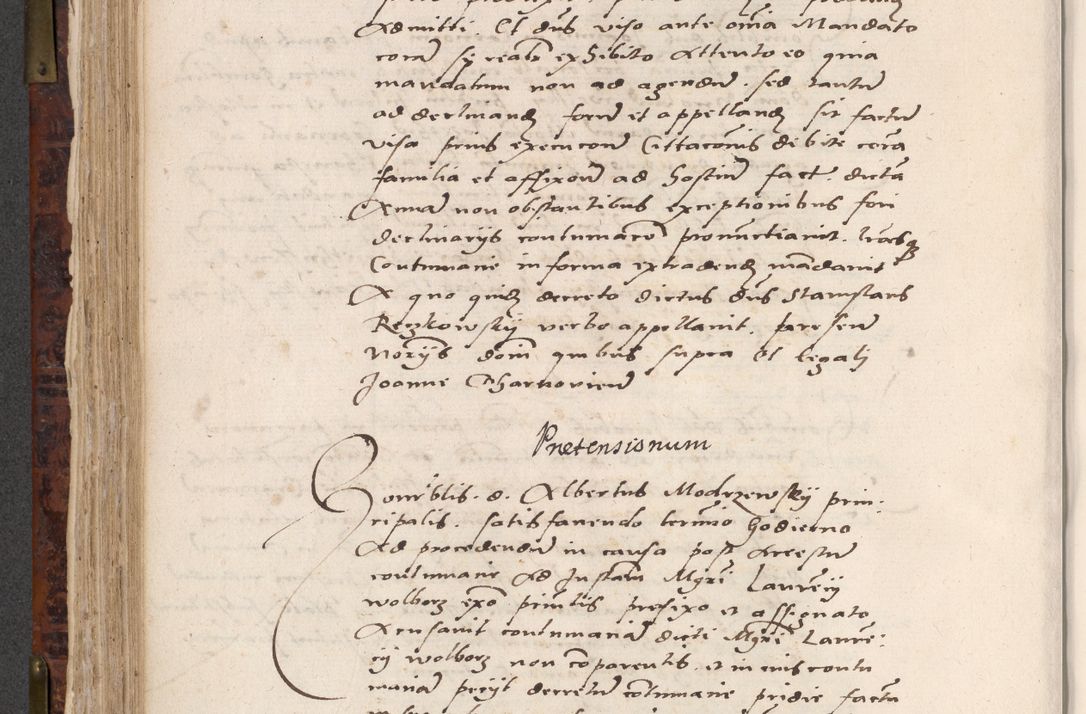 Admitti Et dns viso ante omia Mandato
coram se realr exhibito Attento eo quia
mandatum non ad agendu. sed tantu
ad declinand foru et appelland sit factu
visa prius execucone Cittaconis debite cora
familia et affixone ad hostiu fact. dicta
Annam non obstantibus exceptionibus fori
declinarys contumace pronunctiavit.
Contumacie in forma extradend mandavit
A quo quid decreto dictus dns Stanislaus
Reczkowskij verbo appellavit. presen
Norys dom quibus supra Et legalj
Joanne Charnovien
Pretensionum
Honorblis. d. Albertus Modrzewskij prin-
cipalis. satisfaciendo termio hodierno
Ad procedendu in causa post Arrestu
contumacie Ad Instam Mgri Laurecij
wolborz exo primtis prefixo et assignato
Accusavit contumacia dicti Mgri Laure-
cij wolborz non coparentis. et in eius contu
maciam petijt decretu contumacie pridie factu